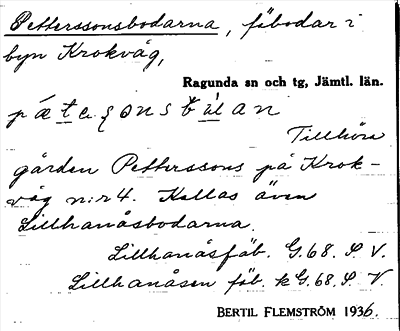 Petterssonsbodarna, fäbodar i
byn Krokvåg,
Ragunda sn och tg, Jämtl. län.
Tillhöra
gården Petterssons på Krok-
våg n:r 4. Kallas även
Lillhanåsbodarna.
Lillhanåsfäb. G.68. S. V.
Lillhanåsen fäb. k G.68. S. V.
BERTIL FLEMSTRÖM 1936.